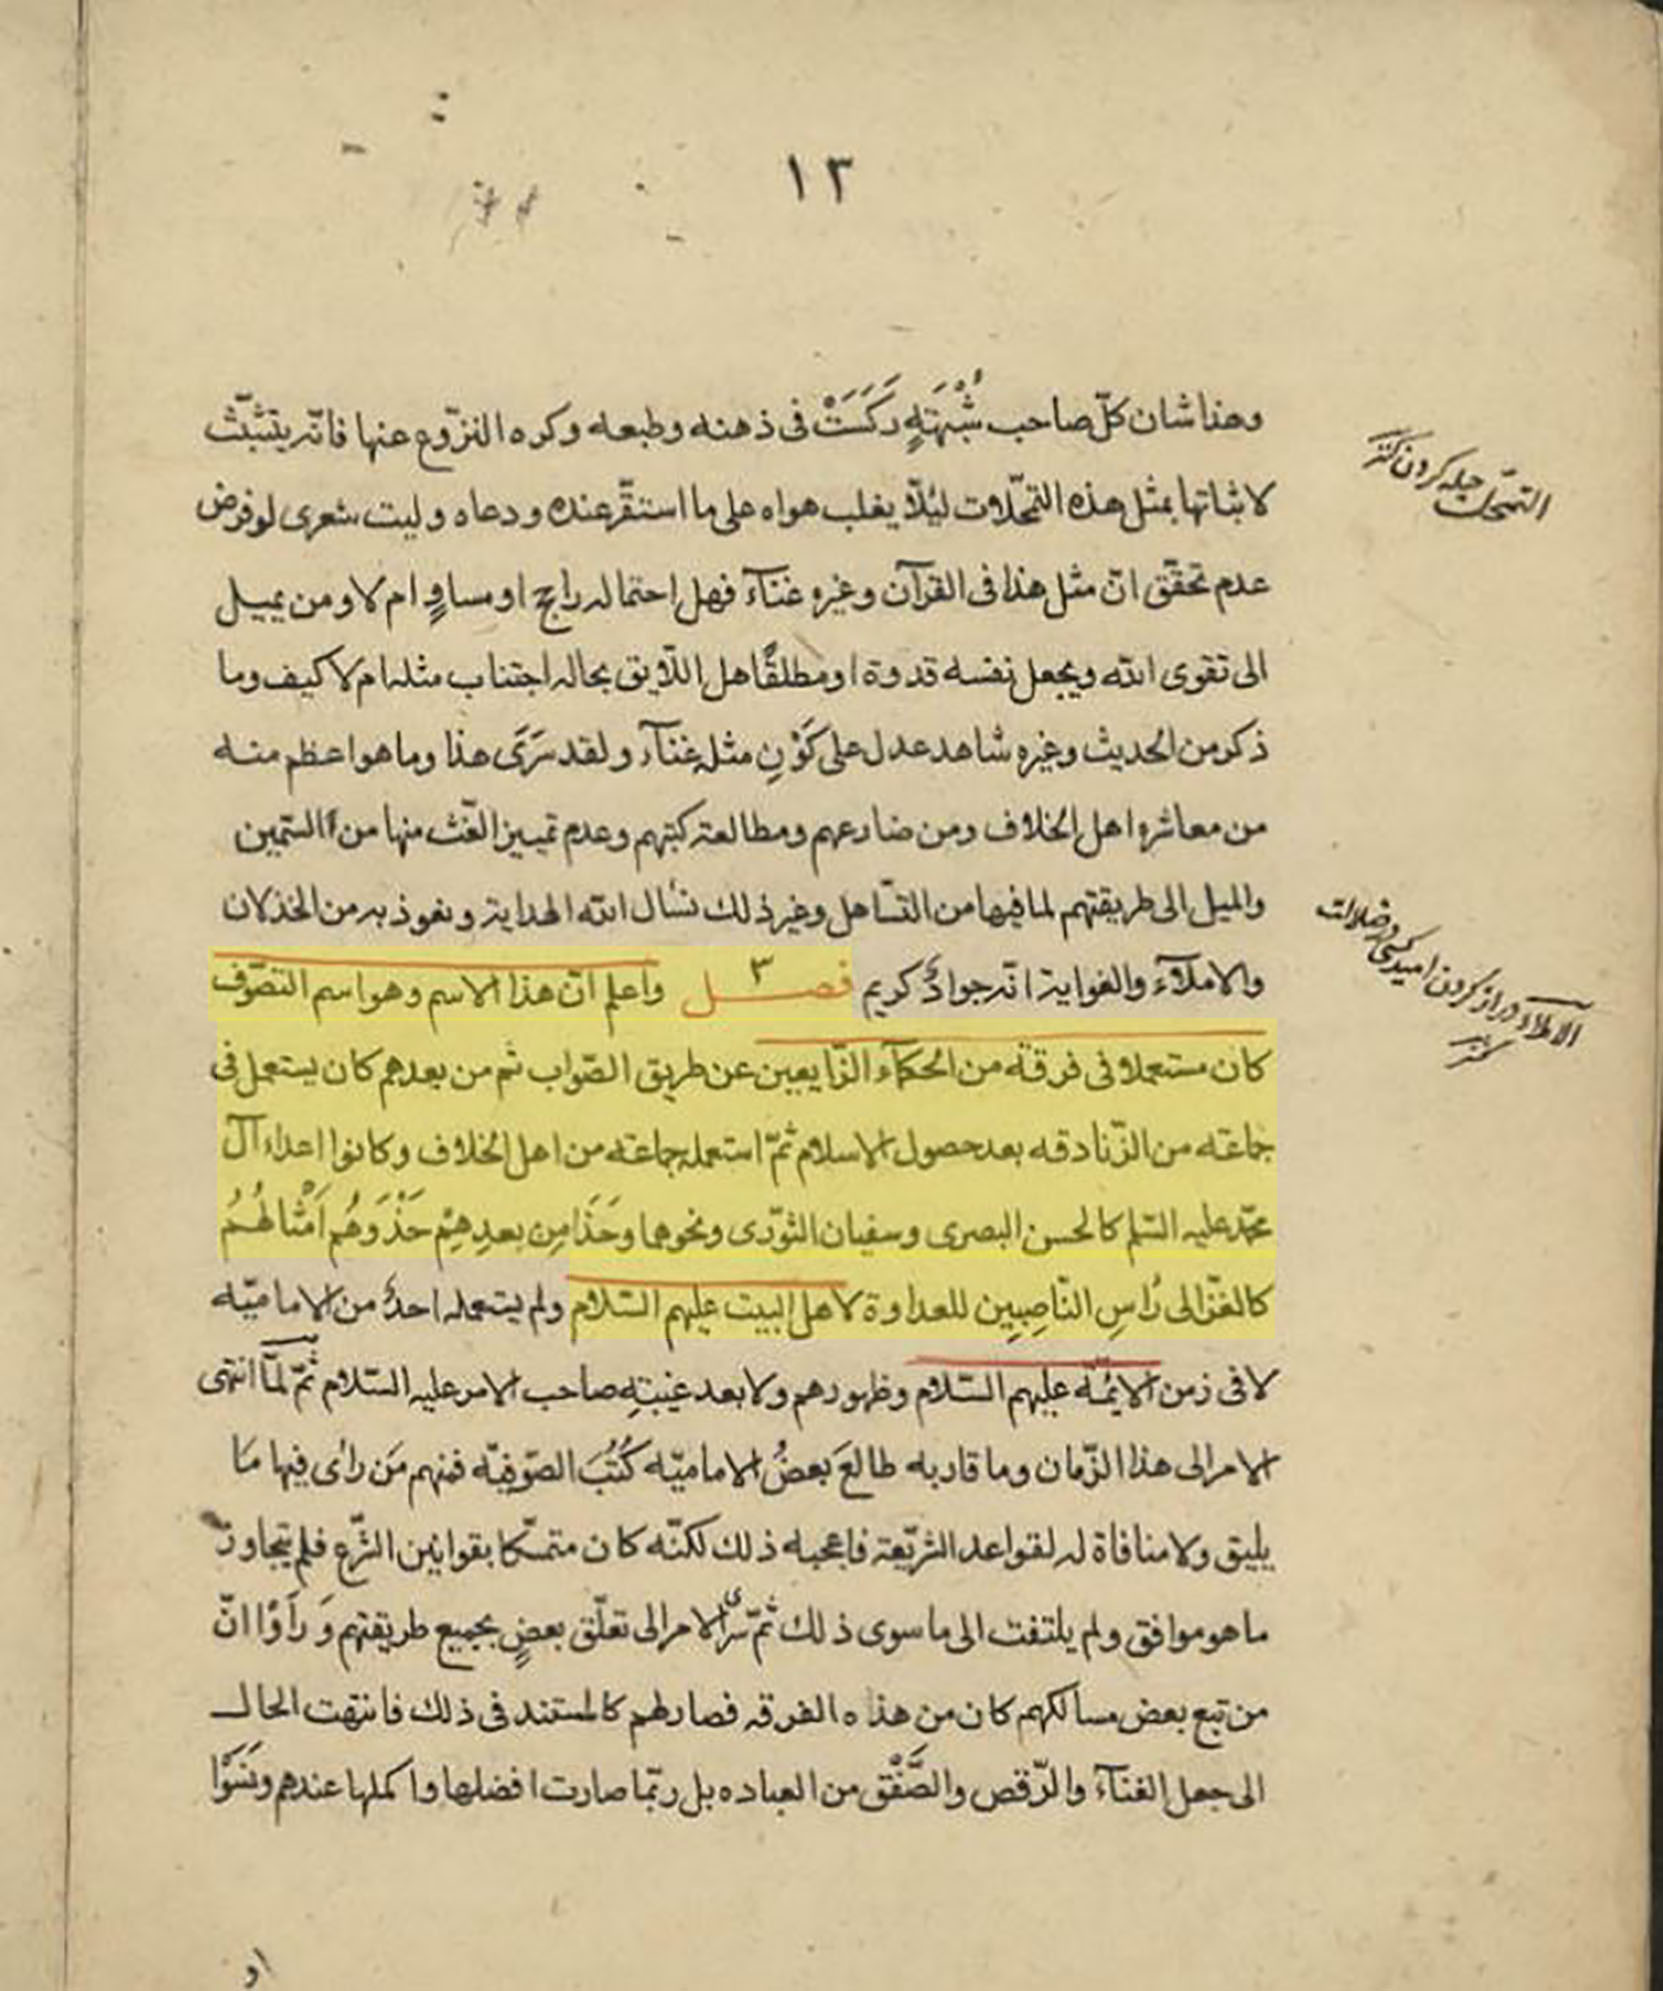 ١٣
وهذا شان كلّ صاحب شُبْهَتِهٍ رَكَسَتْ فى ذهنه وطبعه وكره النزوع عنها فانّه يتشبّث
لاثباتها بمثل هذه التمحّلات لئلّا يغلب هواه على ما استقّر عنده ودعاه وليت شعرى لو فرض
عدم تحقّق انّ مثل هذا فى القرآن وغيره غنآء فهل احتماله راجح او مساوٍ ام لا ومن يميل
الى تقوى الله ويجعل نفسه قدوة او مطلقًا هل اللّايق بحاله اجتناب مثله ام لا كيف وما
ذكر من الحديث وغيره شاهد عدل على كَوْنِ مثله غنآء ولقد سَرَى هذا وما هو اعظم منه
من معاشره اهل الخلاف ومن ضارعهم ومطالعة كتبهم وعدم تمييز الغّث منها من السّمين
والميل الى طريقتهم لما فيها من التسّاهل وغير ذلك نسأل الله الهداية ونعوذ به من الخذلان
والاملآء والغواية انّه جوادٌ كريم فصل ٣ واعلم انّ هذا الاسم وهو اسم التصّوف
كان مستعملا فى فرقه من الحكمآء الزّايعين عن طريق الصّواب ثم من بعدهم كان يستعمل فى
جماعته من الزّنادقه بعد حصول الاسلام ثمّ استعمله جماعته من اهل الخلاف وكانوا اعداء آل
محمّد عليه السّلم كالحسن البصرى وسفيان الثوّرى ونحوهما وحَذَا مِن بعدِهِم حَذْوَهُم اَمْثالُهُمُ
كالغّزالى رُاسِ النّاصِبِين للعداوة لاهل البيت عليهم السّلام ولم يستعمله احدٌ من الاماميّه
لا فى زمن الائمّه عليهم السّلام وظهورهم ولا بعد غيبتِهِ صاحب الامر عليه السّلام ثمّ لمّا انتهى
الامر الى هذا الزّمان وما قاربه طالَعَ بعضُ الاماميّه كُتُبَ الصّوفيّه فمنهم مَن رأى فيها مَا
يليق ولا منافاة له لقواعد الشرّيعة فاعجبه ذلك لكنّه كان متمسّكا بقوانين الشّرع فلم يتجاوز
ما هو موافق ولم يلتفت الى ما سوى ذلك ثمّ سرى الامر الى تعلّق بعضٍ بجميع طريقتهم وَرَأَوْا انّ
من تبع بعض مسالكهم كان من هذه الفرقه فصار لهم كالمستند فى ذلك فانتهت الحال
الى جعل الغنآء والرّقص والصَّفْق من العباده بل ربّما صارت افضلها واكملها عندهم ونَسَوْا
التمحّل حيله كردن كنز
الاملآء دراز كردن اميد كسى در ضلالت
كنز
او